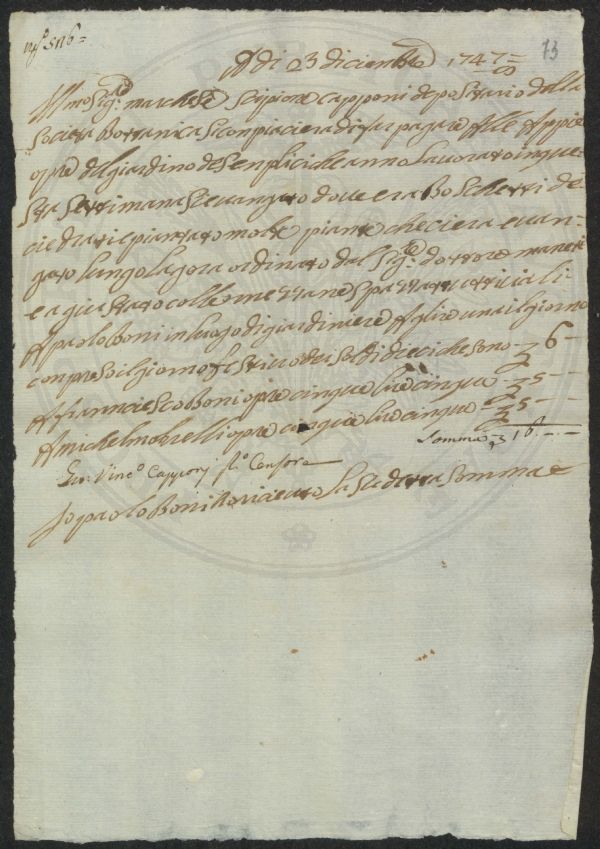 73
A di 23 dicienbre 1747
Illmo Sig.re marchese Scipione Capponi depositario della
Società Bottanica Si conpiacierà di far pagare Alle Appie
opre del giardino de Senplici che anno lavorato in que
sta settimana Si è vangato dove era Boschetti de
ciedrati e piantato molte piante che ci era e van
gato lungo la gora ordinato dal Sig.re dottore maneti
e a giu stato colle spazzature viali
A paolo Boni in luogo di giardiniere A lire una il giorno
conpreso il giorno festivo de Soldi dieci che sono 6
A franciesco Boni opre cinque lire cinque 5
A michel morelli opre cinque lire cinque 5
Somma 16
Gio: Vinc.o Capponj P.o Censore
Io paolo Boni ò riceuto la su detta somma